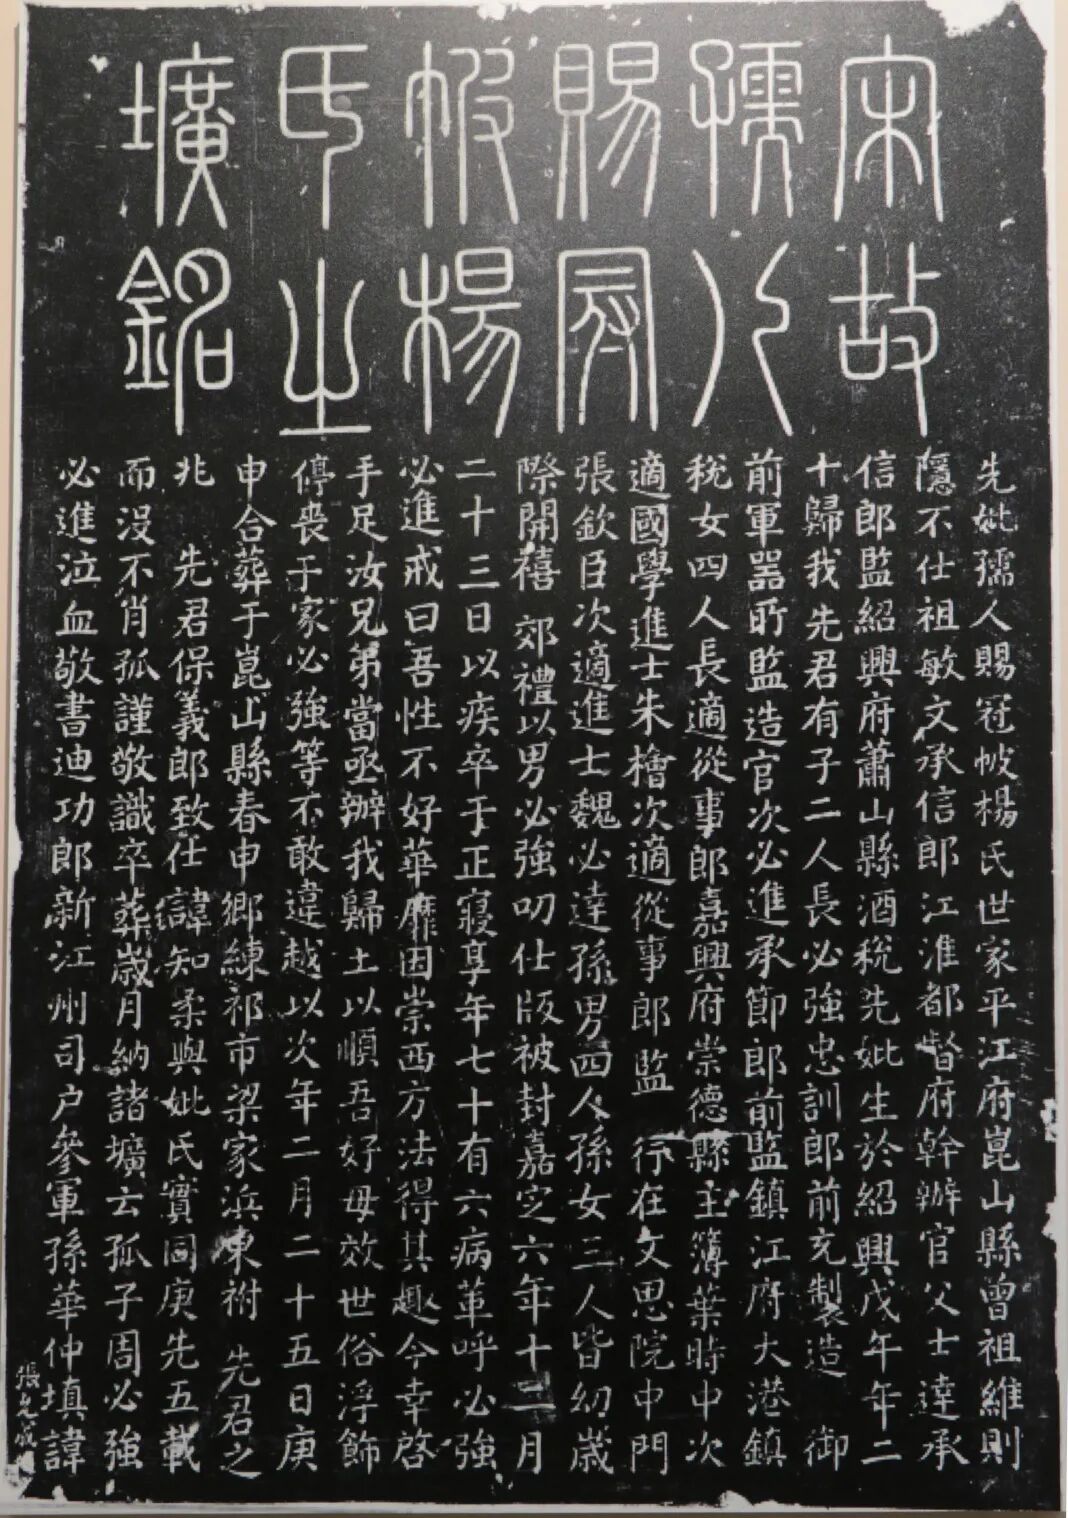 宋故
孺人
賜冠
帔楊
氏之
壙銘
先妣孺人賜冠帔楊氏世家平江府崑山縣曾祖維則
隱不仕祖敏文承信郎江淮都督府幹辦官父士達承
信郎監紹興府蕭山縣酒稅先妣生於紹興戊午年二
十歸我先君有子二人長必強忠訓郎前充製造 御
前軍器所監造官次必進承節郎前監鎮江府大港鎮
稅女四人長適從事郎嘉興府崇德縣主簿葉時中次
適國學進士朱檜次適從事郎監 行在文思院中門
張欽臣次適進士魏必達孫男四人孫女三人皆幼歲
際開禧 郊禮以男必強叨仕版被封嘉定六年十二月
二十三日以疾卒于正寢享年七十有六病革呼必強
必進戒曰吾性不好華靡因崇西方法得其趣今幸啓
手足汝兄弟當亟辦我歸土以順吾好毋效世俗浮飾
停喪于家必強等不敢違越以次年二月二十五日庚
申合葬于崑山縣春申鄉練祁市梁家浜東祔 先君之
兆 先君保義郎致仕諱知柔與妣氏實同庚先五載
而沒不肖孤謹敬識卒葬歲月納諸壙云孤子周必強
必進泣血敬書迪功郎新江州司户參軍孫華仲填諱
張允成